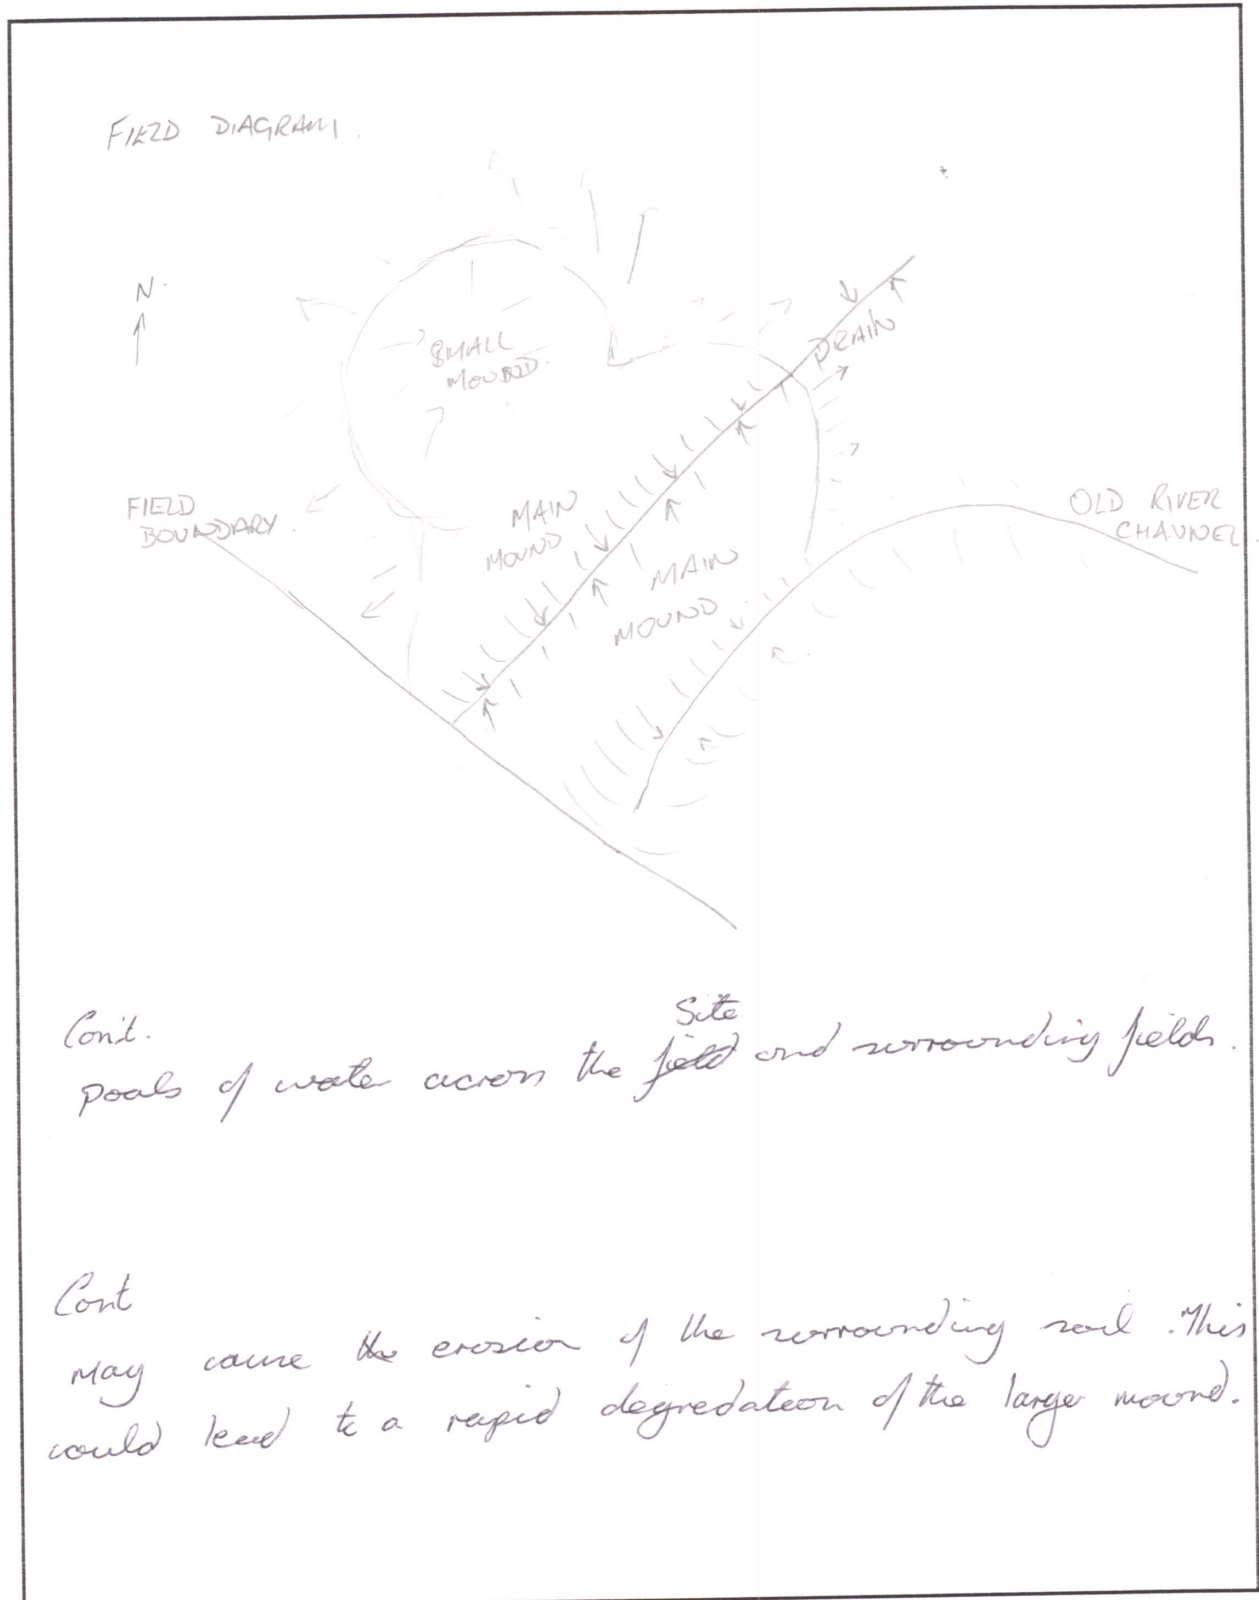 FIELD DIAGRAM.
N.
SMALL
MOUND.
DRAIN
FIELD
BOUNDARY.
MAIN
MOUND
MAIN
MOUND
OLD RIVER
CHANNEL.
Con't.
Site
pools of water across the field and surrounding fields.
Cont
may cause the erosion of the surrounding soil. This
could lead to a rapid degredation of the larger mound.